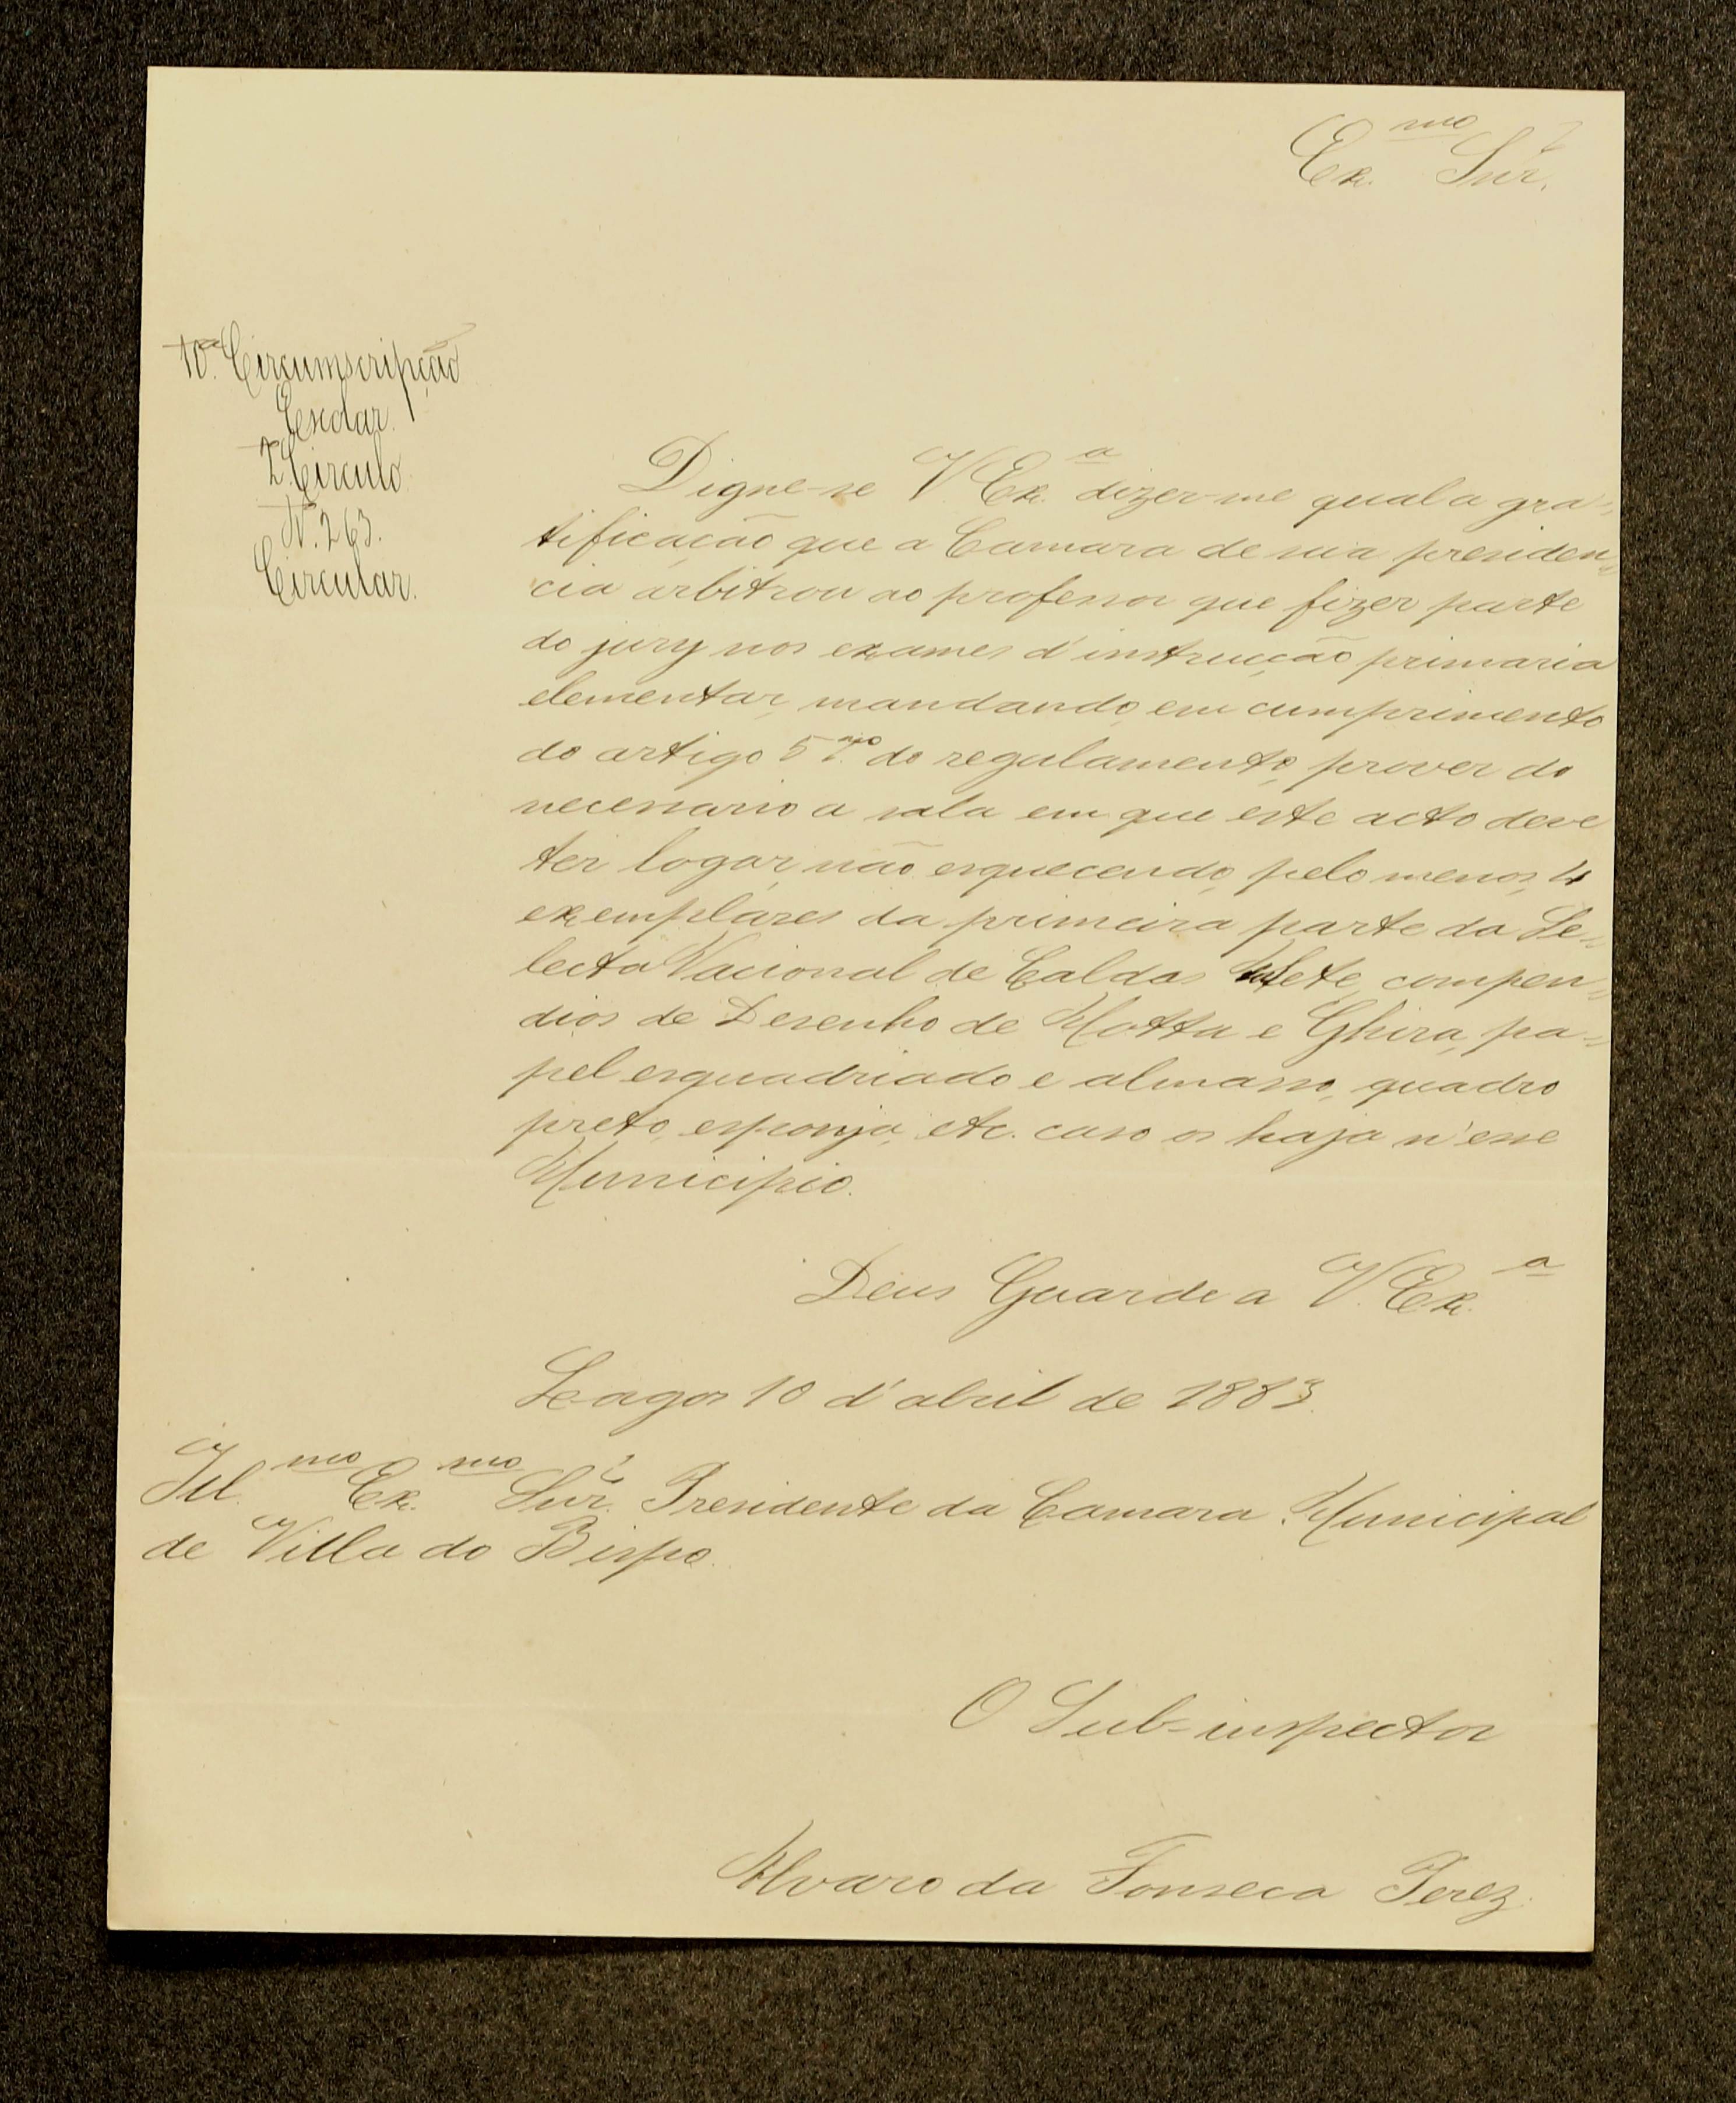 Ex.mo Snr.
10.a Circumscripção
Escolar.
2.o Circulo
N.o 263.
Circular.
Digne-se V. Ex.a dizer-me qual a gra-
tificação que a Camara de sua presiden-
cia arbitrou ao professor que fizer parte
do jury nos exames d'instrucção primaria
elementar, mandando, em cumprimento
do artigo do regulamento, prover do
necessario a sala em que este acto deve
ter logar, não esquecendo, pelo menos, 4
exemplares da primeira parte da Se-
lecta Nacional de Caldas Aulete, compen-
dios de Desenho de Motta e Ghira, pa-
pel esquadriado e almasso, quadro
preto, esponja, etc. caso os haja n'esse
Municipio.
Deus Guarde a V. Ex.a
Lagos 10 d'abril de 1883.
Ill.mo Ex.mo Snr. Presidente da Camara Municipal
de Villa do Bispo.
O Sub-inspector
Alvaro da Fonseca Perez.